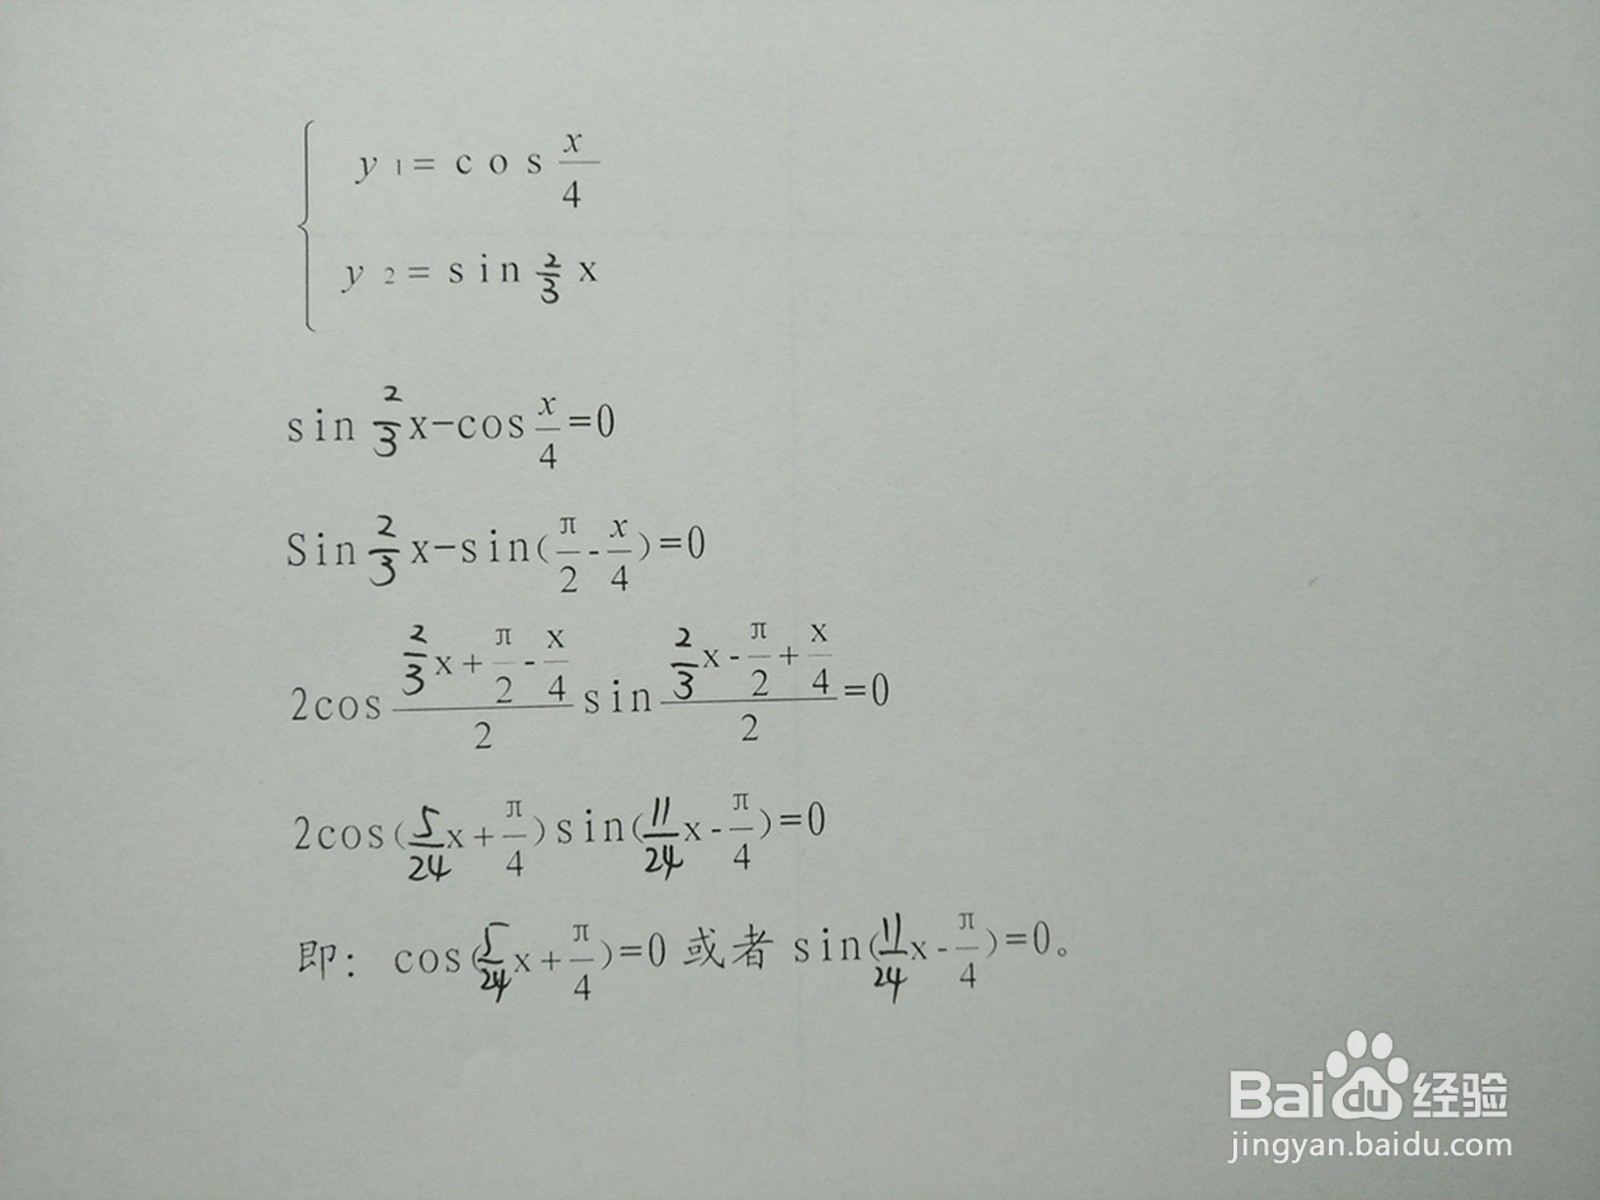 y₁=cos x/4
y₂=sin 2/3 x
sin 2/3 x-cos x/4=0
Sin 2/3 x-sin(π/2-x/4)=0
2cos (2/3 x+π/2-x/4)/2 sin (2/3 x-π/2+x/4)/2=0
2cos(5/24 x+π/4)sin(11/24 x-π/4)=0
即：cos(5/24 x+π/4)=0 或者 sin(11/24 x-π/4)=0。
Bai du 经验
jingyan.baidu.com